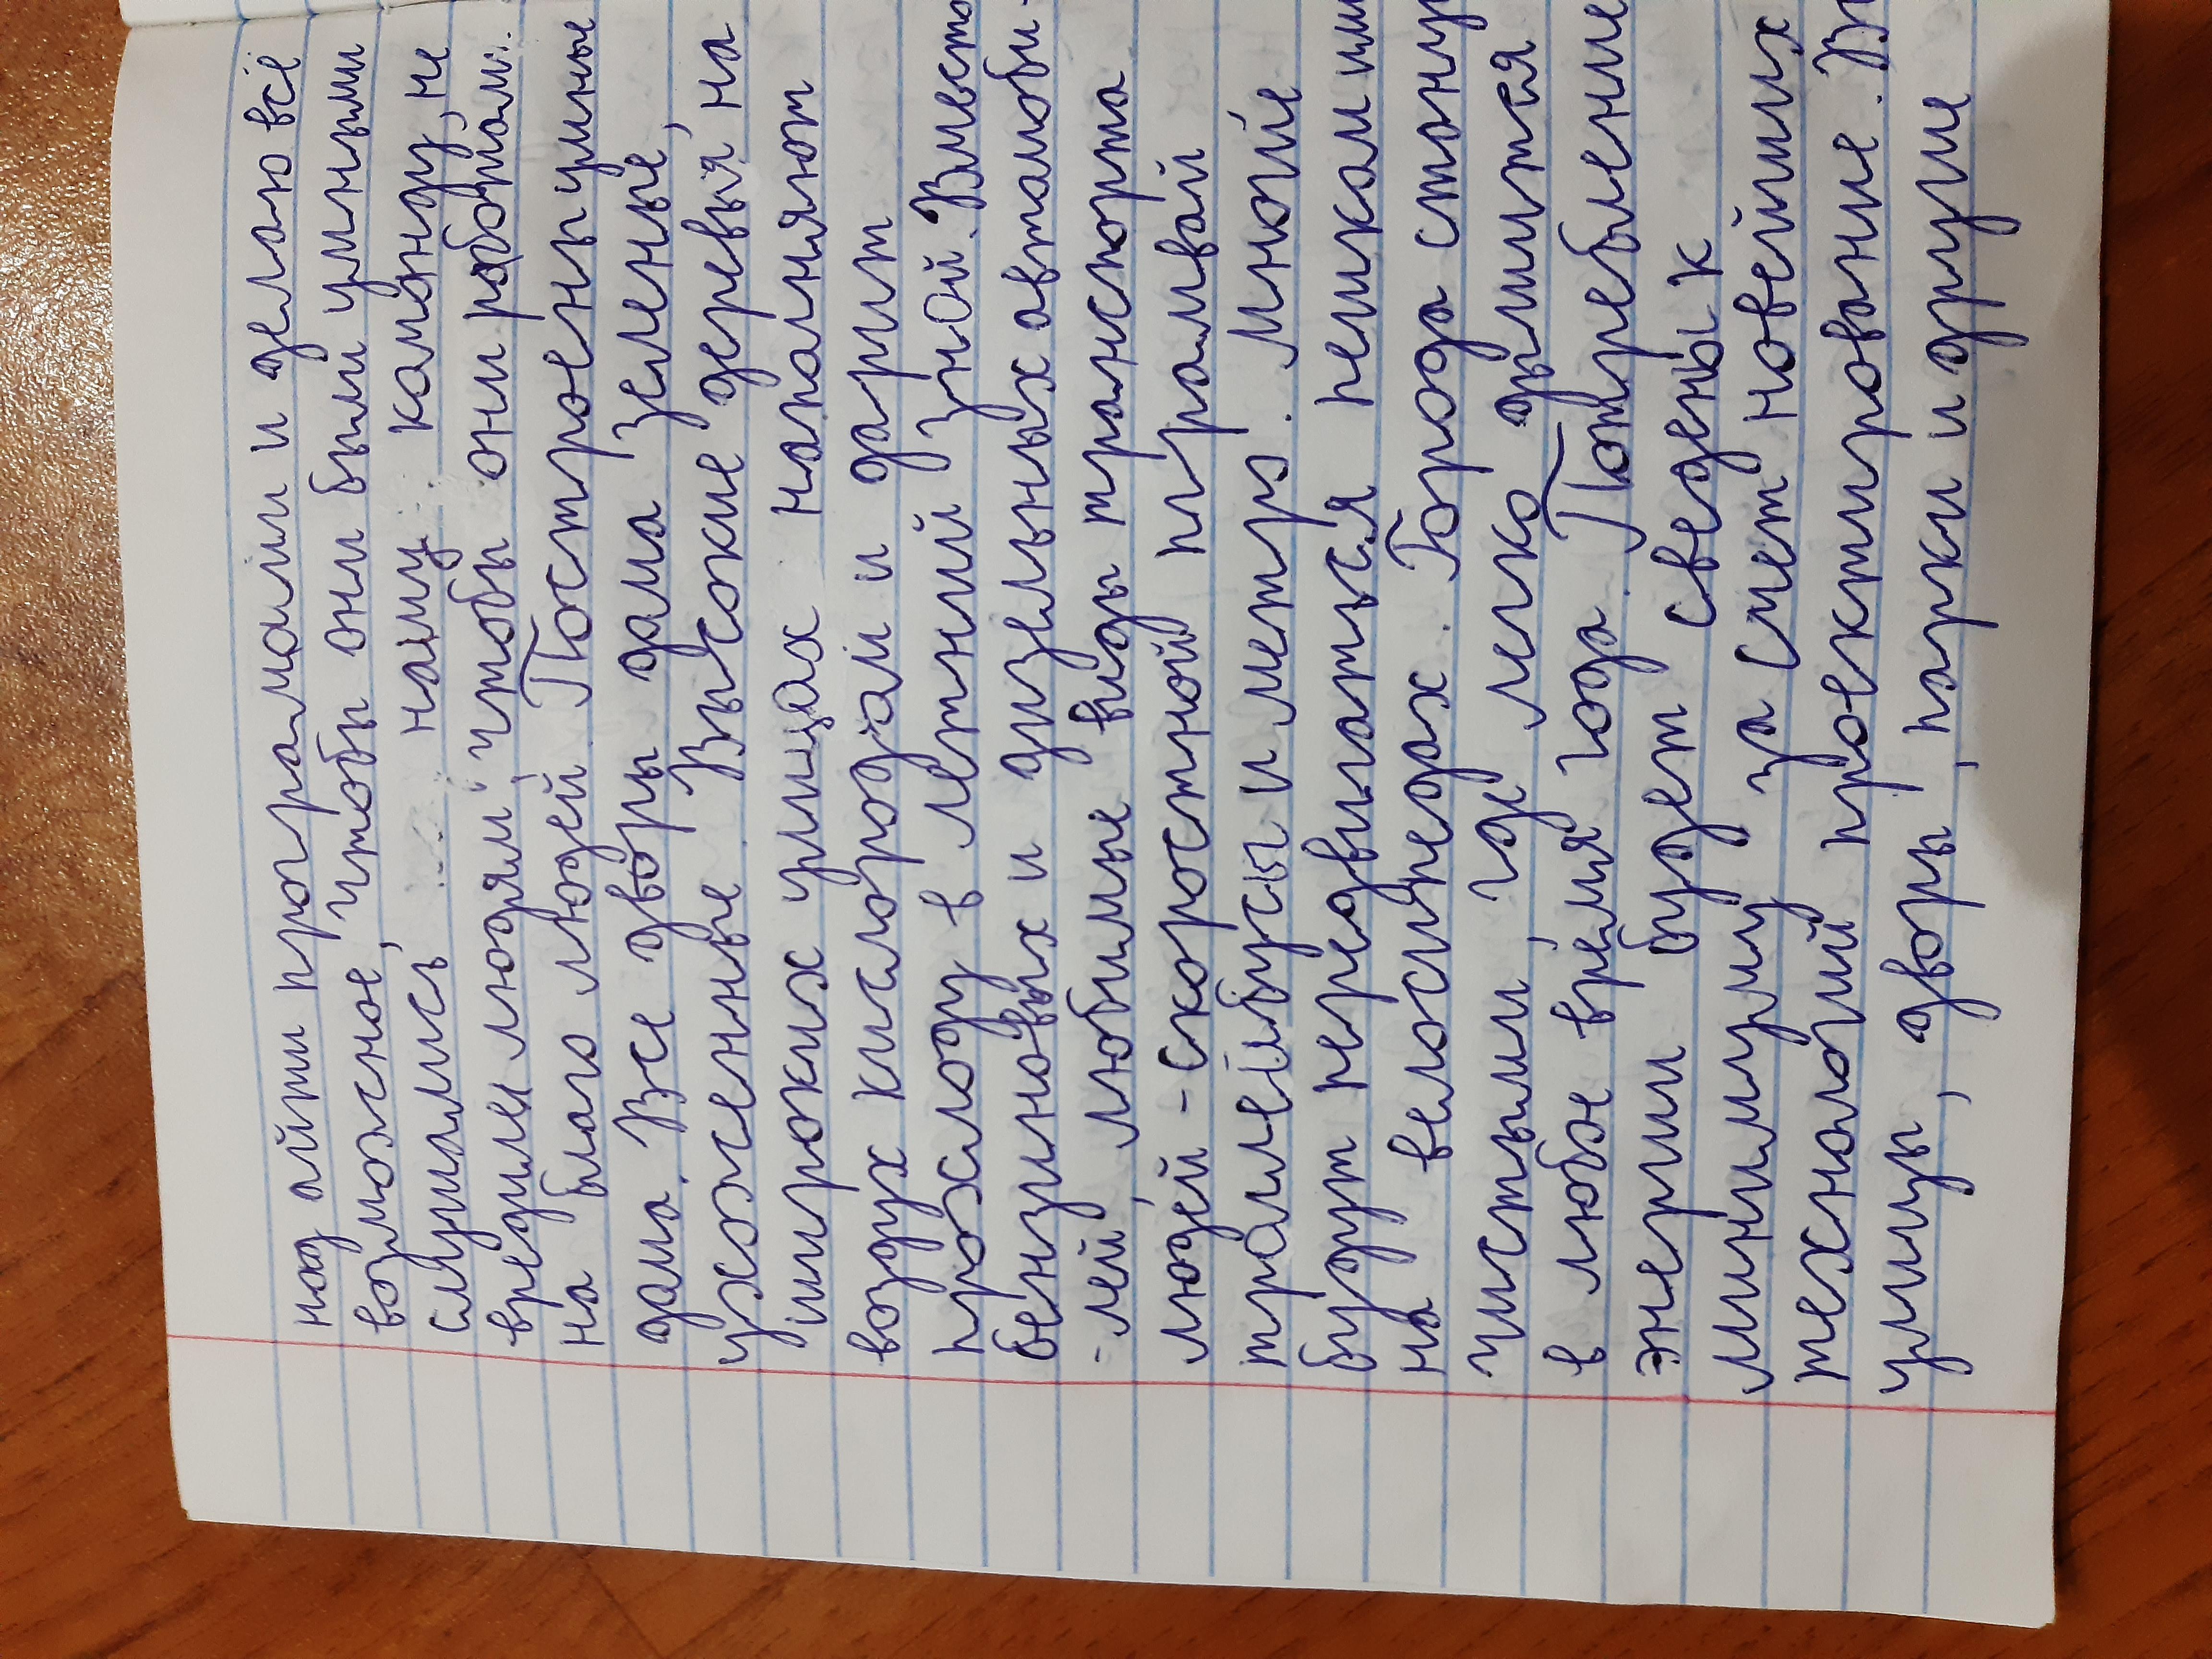 над айти програмами и делаю всё
возможное, чтобы они были умными
слушались нашу команду, не
вредили людям, чтобы они работали
на благо людей. Построены умные
дома. Все дворы дома зеленые,
ухоженные. Высокие деревья, на
широких улицах наполняют
воздух кислородам и дарит
прохладу в летний зной. Вместо
бензиновых и дизельных автамоби-
-лей, любимые виды транспорта
людей - скоростной трамвай
тралейбусы и метро. Многие
будут передвигаться пешком или
на велосипедах. Города стану
чистыми, где легко дышится
в любое время года. Потребление
энергии будет сведены к
минимуму за счет новейших
технологий проектирование. В
улицы, дворы, парки и другие